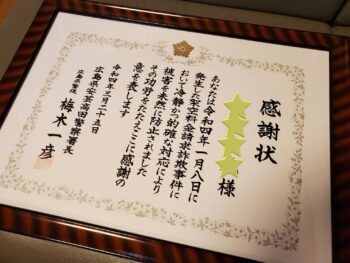 感謝状
様
あなたは令和四年一月八日に
発生した架空料金請求詐欺事件に
おいて冷静かつ的確な対応により
被害を未然に防止されました
その功労をたたえここに感謝の
意を表します
令和四年三月二十五日
広島県安芸高田警察署長
広島県警視 梅木一彦